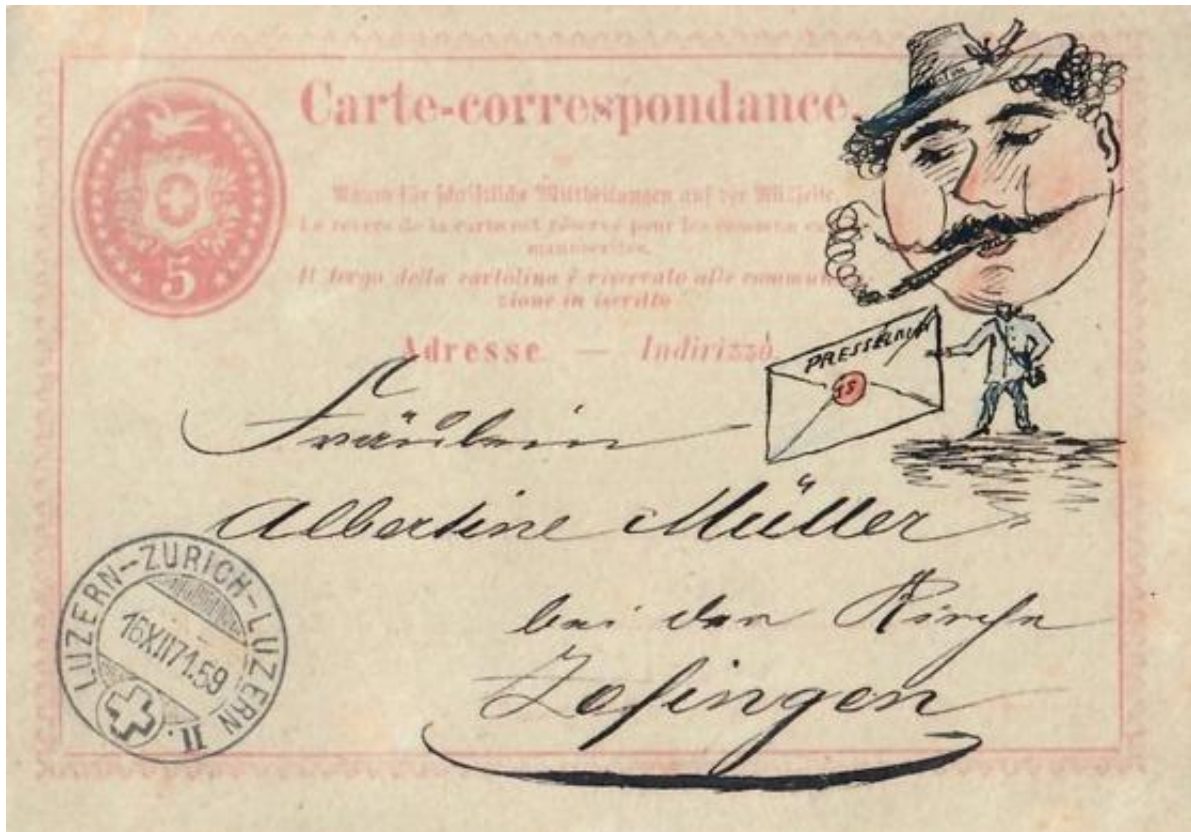 Carte-correspondance.
5
Raum für schriftliche Mittheilungen auf der Rückseite.
Le revers de la carte est réservé pour les
manuscrites.
Il tergo della cartolina è riservato alle
zione in iscritto
Adresse — Indirizzo
Fräulein
Albertine Müller
bei der Kirche
Zofingen
LUZERN-ZURICH-LUZERN II.
16XII71.59